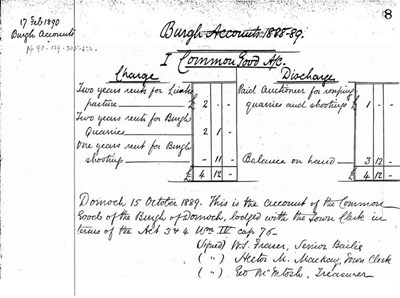 8
17 Feb 1890
Burgh Accounts
Burgh Accounts 1888-89.
I Common Good A/c.
Charge
Discharge
Two years rents for Links
pasture £ 2 - -
Two years rents for Burgh
Quarries 2 1 -
One years rent for Burgh
shootings - 11 -
£ 4 12 -
Paid Auctioneer for rouping
quarries and shootings £ 1 - -
Balance on hand 3 12 -
£ 4 12 -
Dornoch 15 October 1889. This is the account of the Common
Goods of the Burgh of Dornoch, lodged with the Town Clerk in
terms of the Act 3 & 4 Wm IV cap 76-
(Signed) W.S. Fraser, Senior Bailie
( " ) Hector M. Mackay, Town Clerk
( " ) Geo McIntosh, Treasurer